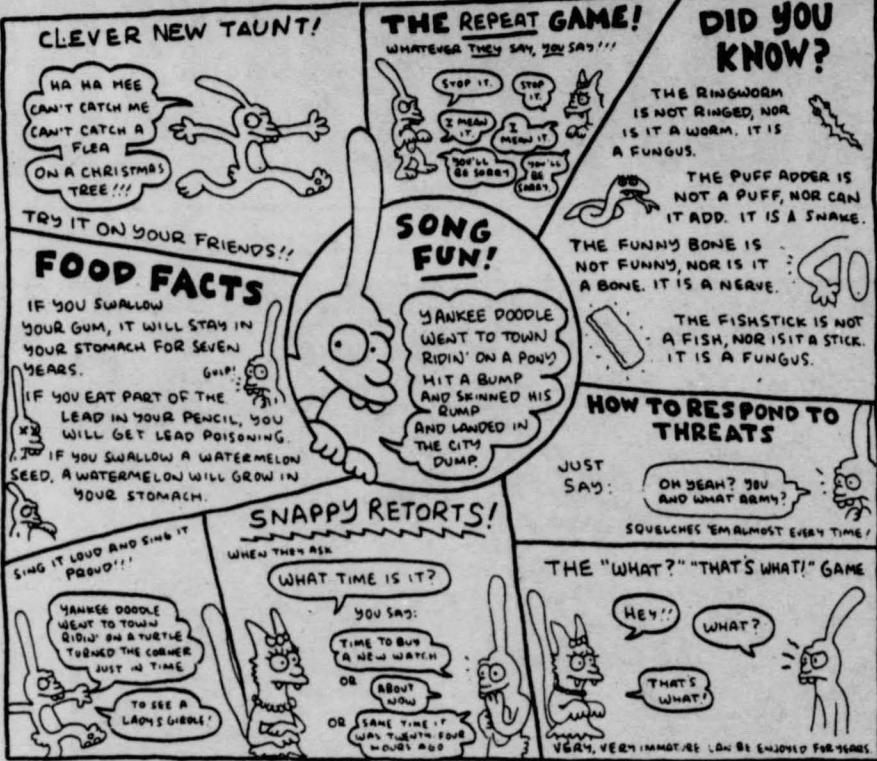 CLEVER NEW TAUNT!
HA HA HEE
CAN'T CATCH ME
CAN'T CATCH A
FLEA
ON A CHRISTMAS
TREE!!!
TRY IT ON YOUR FRIENDS!!
THE REPEAT GAME!
WHATEVER THEY SAY, YOU SAY!!!
STOP IT.
STOP
IT.
I MEAN
IT.
I
MEAN IT.
YOU'LL
BE SORRY
YOU'LL
BE
SORRY.
DID YOU
KNOW?
THE RINGWORM
IS NOT RINGED, NOR
IS IT A WORM. IT IS
A FUNGUS.
THE PUFF ADDER IS
NOT A PUFF, NOR CAN
IT ADD. IT IS A SNAKE.
THE FUNNY BONE IS
NOT FUNNY, NOR IS IT
A BONE. IT IS A NERVE.
THE FISHSTICK IS NOT
A FISH, NOR IS IT A STICK.
IT IS A FUNGUS.
FOOD FACTS
IF YOU SWALLOW
YOUR GUM, IT WILL STAY IN
YOUR STOMACH FOR SEVEN
YEARS.
GULP!
IF YOU EAT PART OF THE
LEAD IN YOUR PENCIL, YOU
WILL GET LEAD POISONING.
IF YOU SWALLOW A WATERMELON
SEED, A WATERMELON WILL GROW IN
YOUR STOMACH.
SONG
FUN!
YANKEE DOODLE
WENT TO TOWN
RIDIN' ON A PONY
HIT A BUMP
AND SKINNED HIS
RUMP
AND LANDED IN
THE CITY
DUMP.
HOW TO RESPOND TO
THREATS
JUST
SAY:
OH YEAH? YOU
AND WHAT ARMY?
SQUELCHES 'EM ALMOST EVERY TIME!
SING IT LOUD AND SING IT
PROUD!!!
YANKEE DOODLE
WENT TO TOWN
RIDIN' ON A TURTLE
TURNED THE CORNER
JUST IN TIME
TO SEE A
LADY'S GIRDLE!
SNAPPY RETORTS!
WHEN THEY ASK
WHAT TIME IS IT?
YOU SAY:
TIME TO BUY
A NEW WATCH
OR
ABOUT
NOW
OR
SAME TIME IT
WAS TWENTY-FOUR
HOURS AGO
THE "WHAT?" "THAT'S WHAT!" GAME
HEY!!
WHAT?
THAT'S
WHAT!
VERY, VERY IMMATURE CAN BE ENJOYED FOR YEARS.